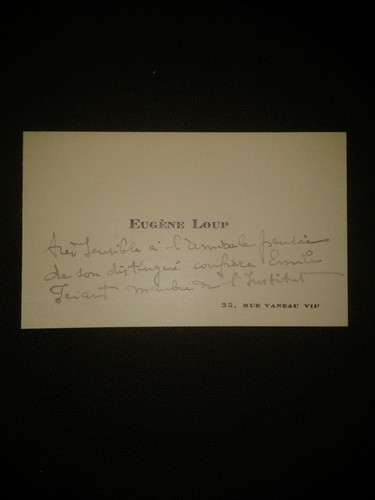 EUGÈNE LOUP
très sensible à l'aimable pensée
de son distingué confrère Emile
membre de l'Institut
25, RUE VANEAU VIIᵉ